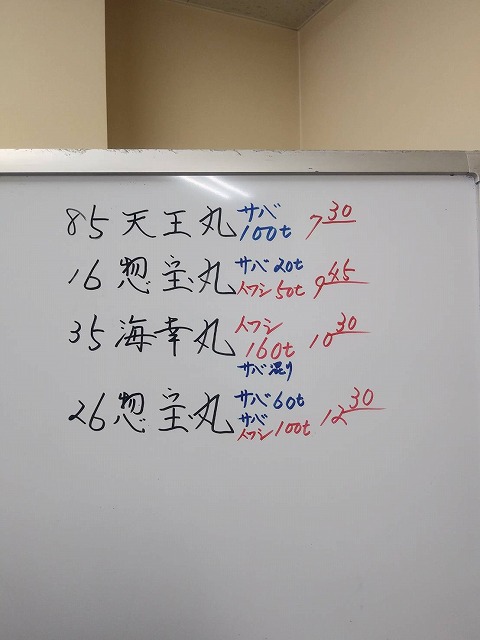 85 天王丸 サバ 100t 7 30
16 惣宝丸 サバ 20t イワシ 50t 9 45
35 海幸丸 イワシ 160t サバ混り 10 30
26 惣宝丸 サバ 60t サバ イワシ 100t 12 30